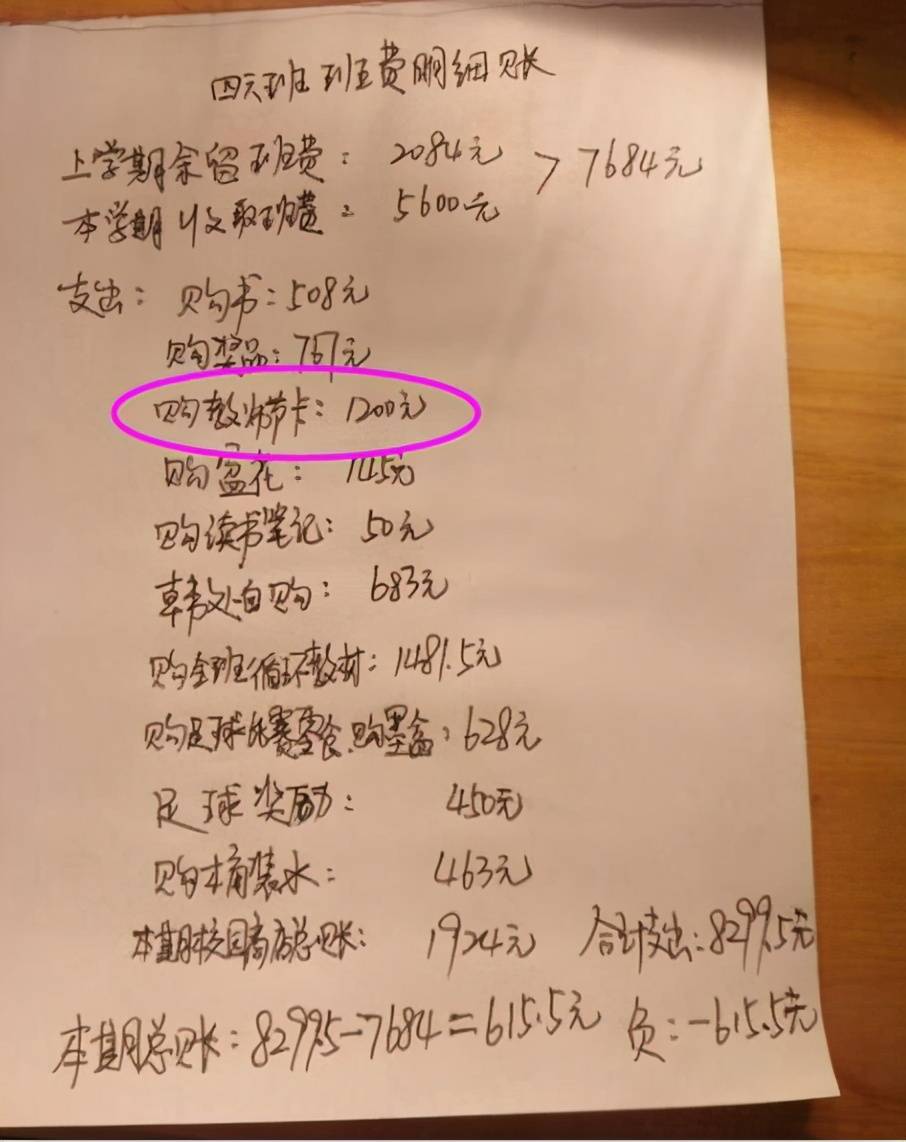 四六班班费明细账
上学期余留班费: 2084元 > 7684元
本学期收取班费: 5600元
支出: 购书:508元
购奖品:767元
购教师节卡: 1200元
购盆花: 145元
购读书笔记: 50元
自购: 683元
购全班循环教材:1481.5元
购足球比赛零食、购墨盒:628元
足球奖励: 450元
购桶装水: 463元
本期校园商店总账: 1924元 合计支出:8299.5元
本期总账:8299.5-7684=615.5元 负:-615.5元